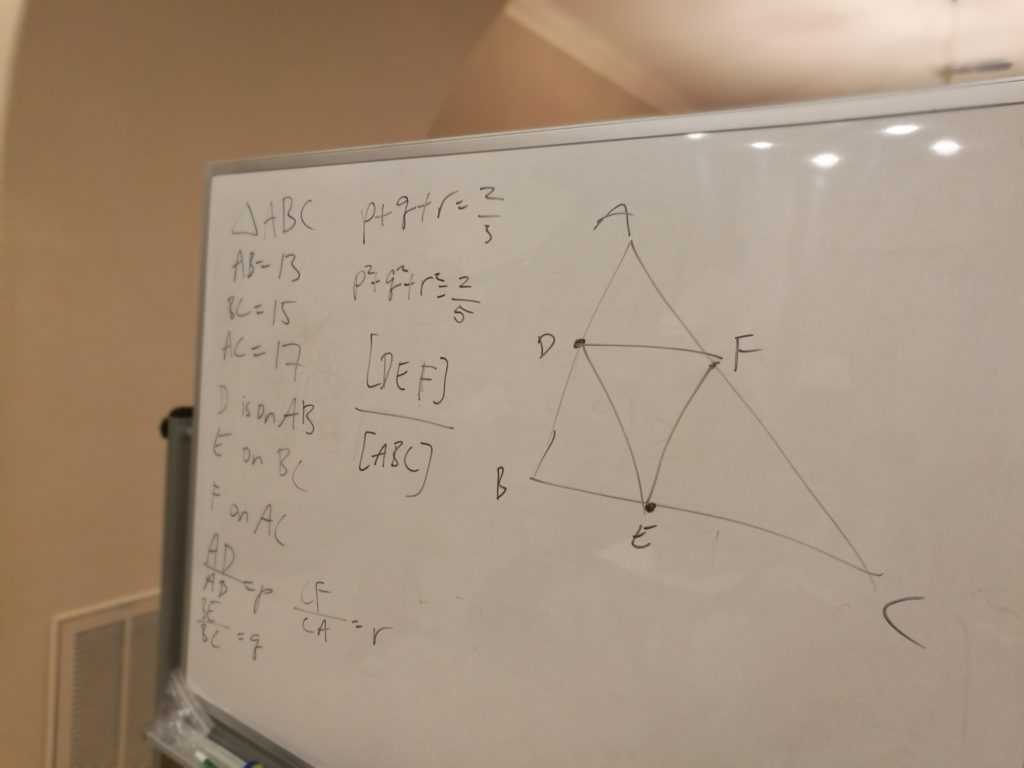 △ABC
AB=13
BC=15
AC=17
D is on AB
E on BC
F on AC
AD/AB=p
BE/BC=q
CF/CA=r
p+q+r=2/3
p²+q²+r²=2/5
[DEF]/[ABC]
A
D
F
B
E
C